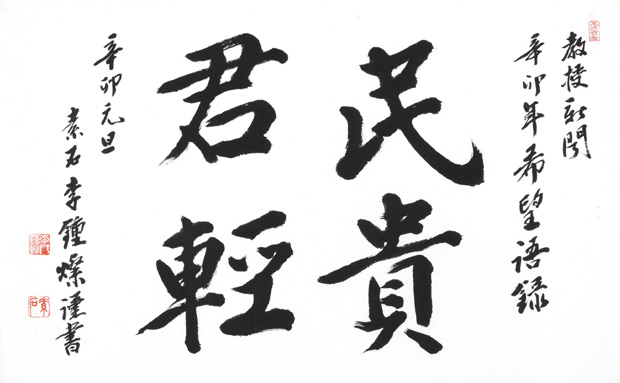 教授新聞
辛卯年希望语録
民貴
君輕
辛卯元旦
素石李鍾燦謹書
素石